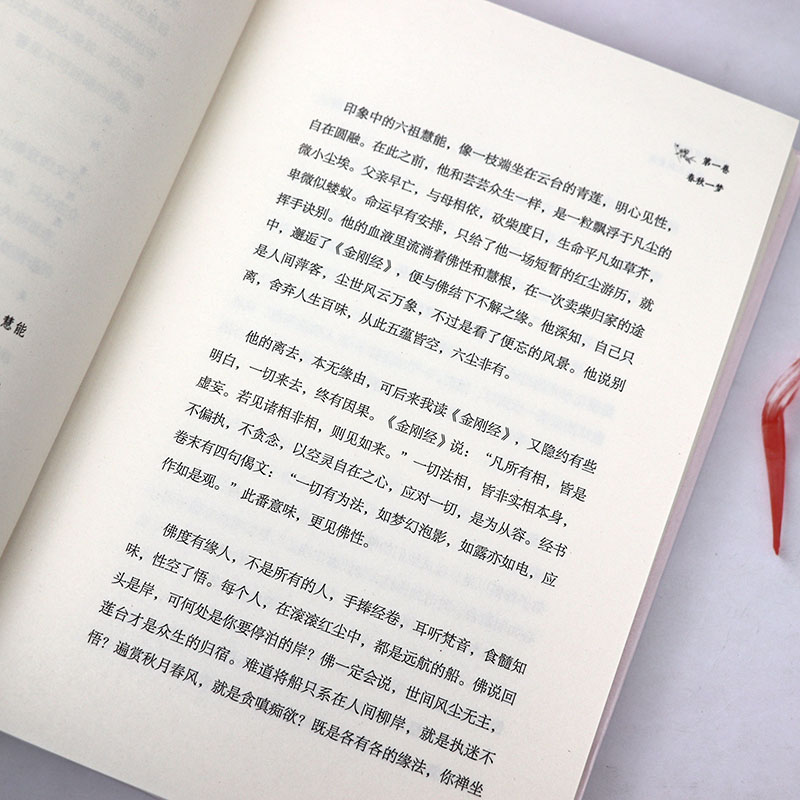 慧能
第一卷
春秋一梦
印象中的六祖慧能，像一枝端坐在云台的青莲，明心见性，
自在圆融。在此之前，他和芸芸众生一样，是一粒飘浮于凡尘的
微小尘埃。父亲早亡，与母相依，砍柴度日，生命平凡如草芥，
卑微似蝼蚁。命运早有安排，只给了他一场短暂的红尘游历，就
挥手诀别。他的血液里流淌着佛性和慧根，在一次卖柴归家的途
中，邂逅了《金刚经》，便与佛结下不解之缘。他深知，自己只
是人间萍客，尘世风云万象，不过是看了便忘的风景。他说别
离，舍弃人生百味，从此五蕴皆空，六尘非有。
他的离去，本无缘由，可后来我读《金刚经》，又隐约有些
明白，一切来去，终有因果。《金刚经》说：“凡所有相，皆是
虚妄。若见诸相非相，则见如来。”一切法相，皆非实相本身，
不偏执，不贪念，以空灵自在之心，应对一切，是为从容。经书
卷末有四句偈文：“一切有为法，如梦幻泡影，如露亦如电，应
作如是观。”此番意味，更见佛性。
佛度有缘人，不是所有的人，手捧经卷，耳听梵音，食髓知
味，性空了悟。每个人，在滚滚红尘中，都是远航的船。佛说回
头是岸，可何处是你要停泊的岸？佛一定会说，世间风尘无主，
莲台才是众生的归宿。难道将船只系在人间柳岸，就是执迷不
悟？遍赏秋月春风，就是贪嗔痴欲？既是各有各的缘法，你禅坐